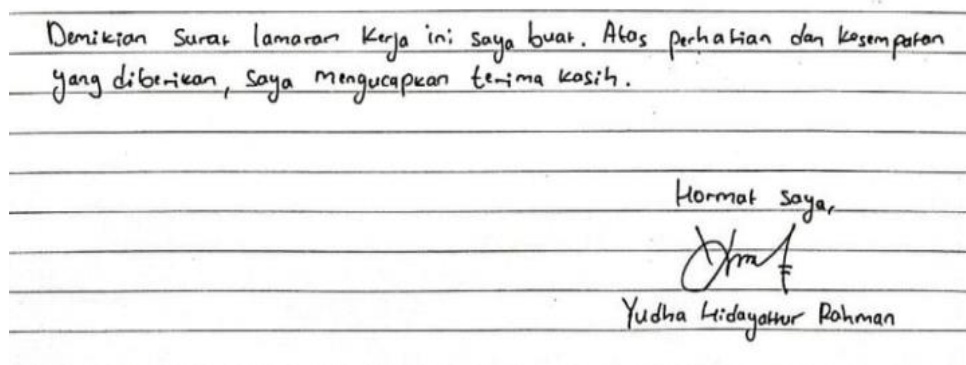 Demikian Surat lamaran Kerja ini saya buat. Atas perhatian dan kesempatan
yang diberikan, saya mengucapkan terima kasih.
Hormat saya,
Yudha Hidayattur Rahman